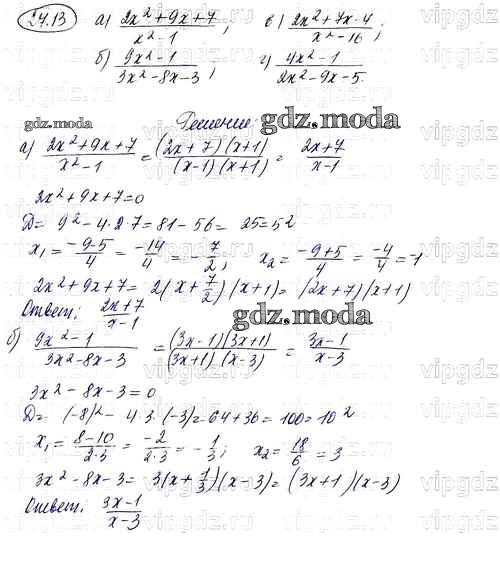 24.13 а) (2x²+9x+7)/(x²-1); в) (2x²+7x-4)/(x²-16);
б) (9x²-1)/(3x²-8x-3); г) (4x²-1)/(2x²-9x-5)
gdz.moda Решение: gdz.moda
а) (2x²+9x+7)/(x²-1) = ((2x+7)(x+1))/((x-1)(x+1)) = (2x+7)/(x-1)
2x²+9x+7=0
D= 9²-4·2·7=81-56= 25=5²
x₁= (-9-5)/4 = -14/4 = -7/2; x₂= (-9+5)/4 = -4/4 = -1
2x²+9x+7= 2(x+7/2)(x+1)= (2x+7)(x+1)
Ответ: (2x+7)/(x-1)
gdz.moda
б) (9x²-1)/(3x²-8x-3) = ((3x-1)(3x+1))/((3x+1)(x-3)) = (3x-1)/(x-3)
3x²-8x-3=0
D= (-8)²- 4·3·(-3)=64+36=100=10²
x₁= (8-10)/(2·3) = -2/(2·3) = -1/3; x₂= 18/6 = 3
3x²-8x-3= 3(x+1/3)(x-3)= (3x+1)(x-3)
Ответ: (3x-1)/(x-3)
vipgdz.ru